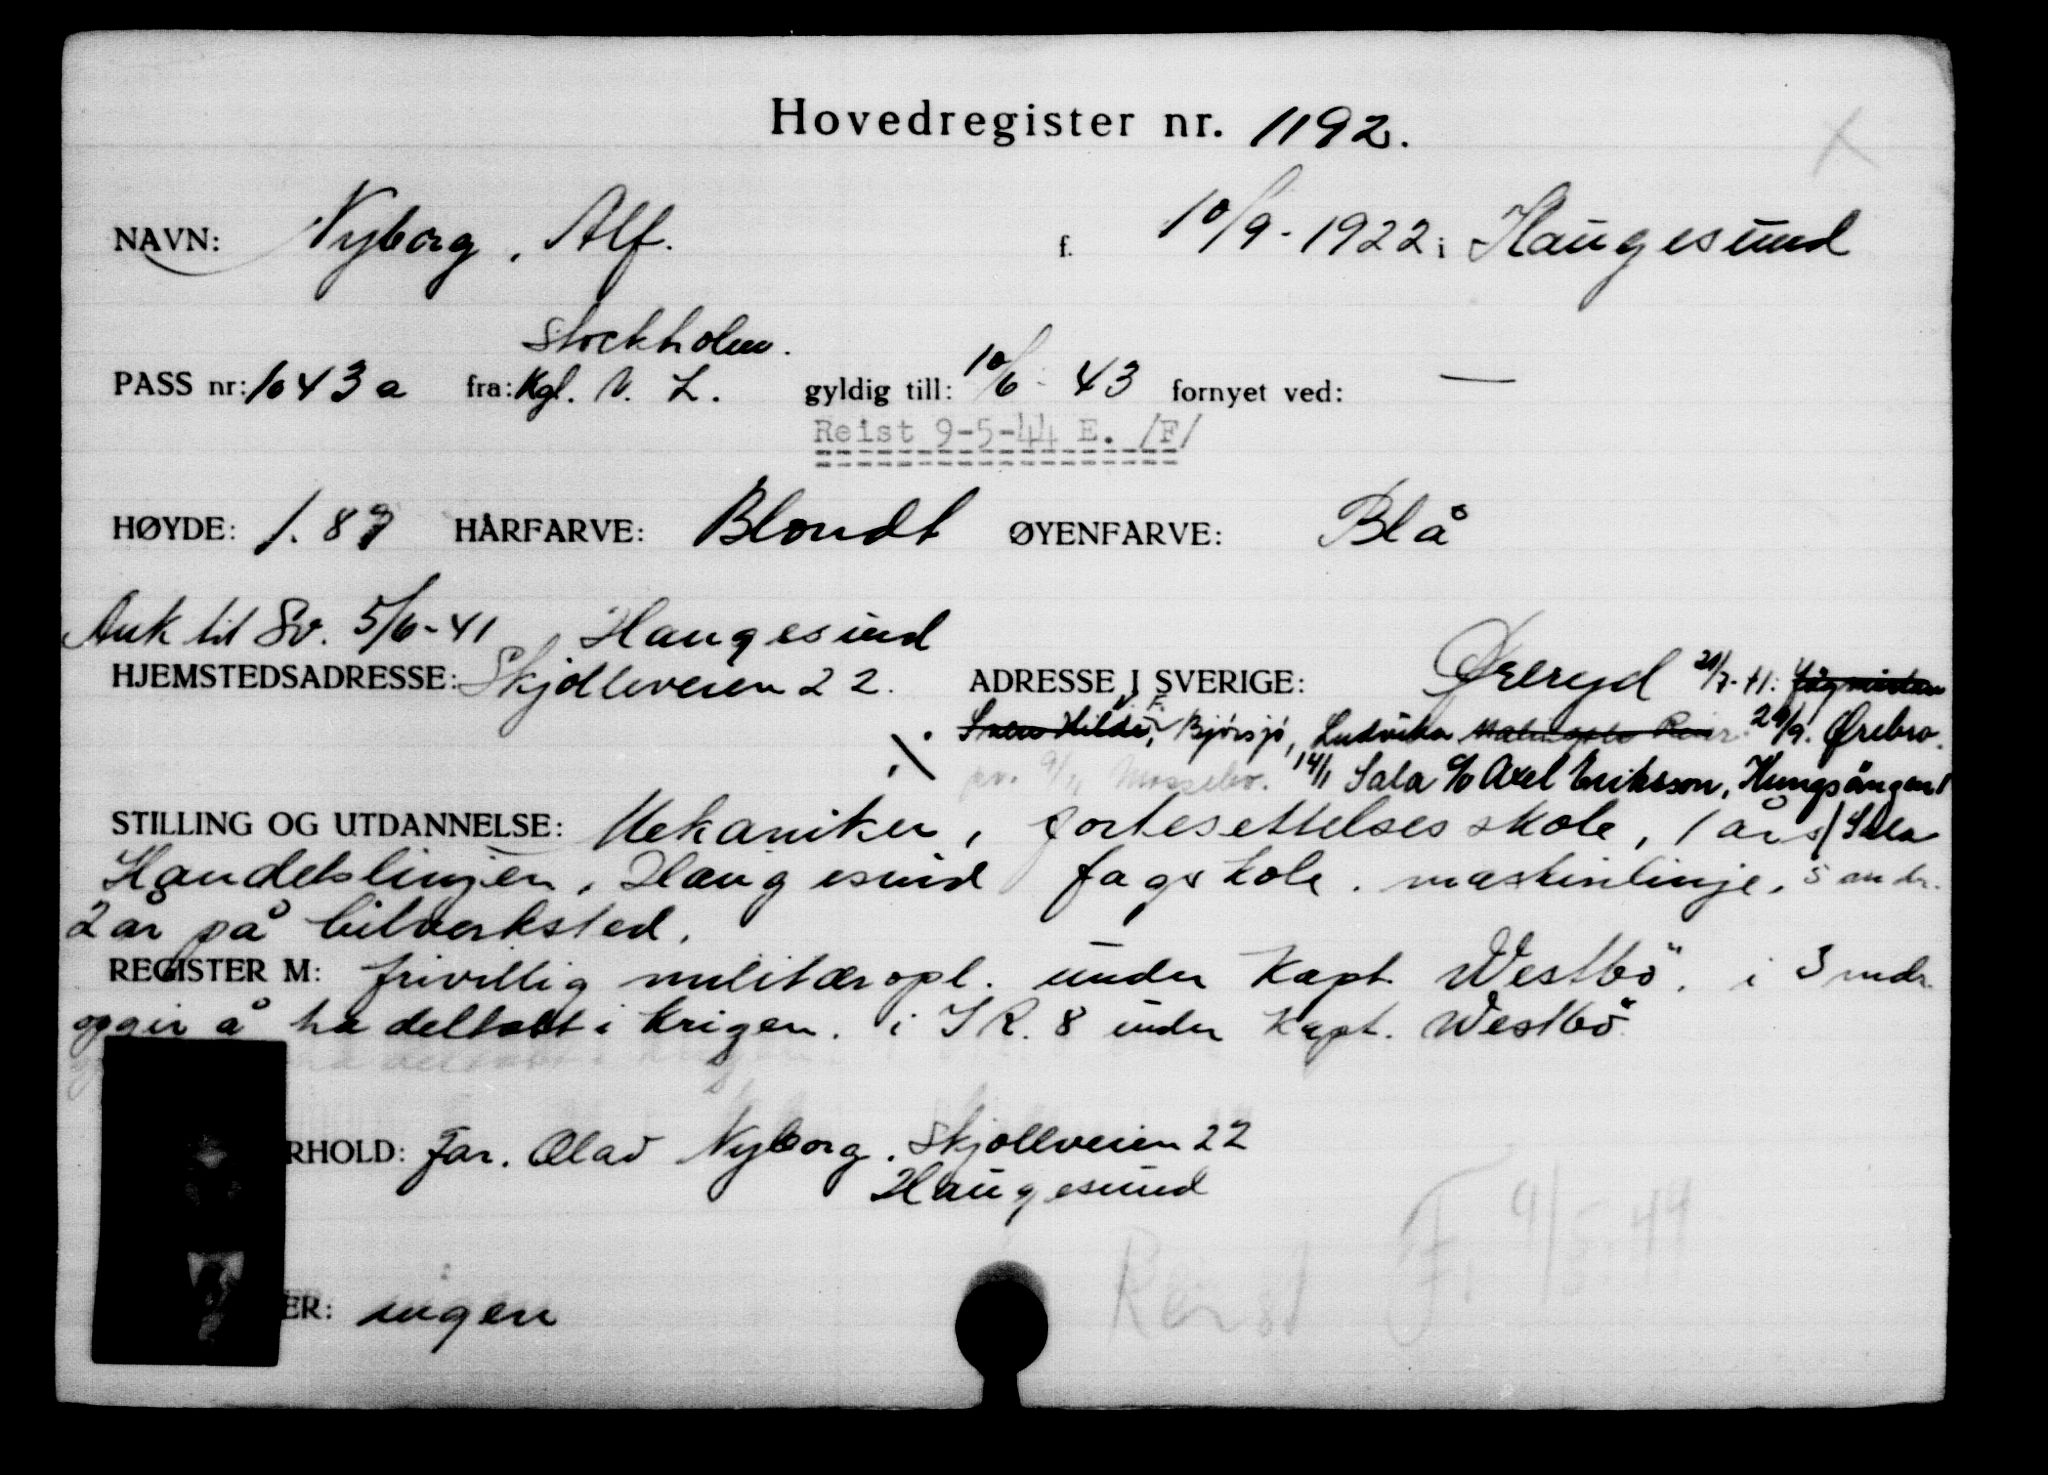 Hovedregister nr. 1192.
NAVN: Nyborg, Alf. f. 10/9-1922 i Haugesund
Stockholm.
PASS nr: 1043a fra: Kgl. N. L. gyldig till: 10/6-43 fornyet ved: —
Reist 9-5-44 E. /F/
HØYDE: 1.87 HÅRFARVE: Blondt ØYENFARVE: Blå
Ank til Sv. 5/6-41 Haugesund
HJEMSTEDSADRESSE: Skjolleveien 22. ADRESSE I SVERIGE: Øreryd 21/7-41:
Bjørsjø, Ludvika 29/9. Ørebro.
9/11 14/1 Sala c/o Axel Eriksson, Hungsängen 1
STILLING OG UTDANNELSE: Mekaniker, fortesettelsesskole, 1 års / Sala
Handelslinjen, Haugesund fagskole. maskinlinje, 5 mndr.
2 år på bilverksted.
REGISTER M: frivillig militæropl. under Kapt. Westbö. i 3 mdr.
opgir å ha deltatt i krigen. i I.R. 8 under Kapt. Westbö.
RHOLD: Far. Olav Nyborg. Skjollveien 22
Haugesund
Reist F. 9/5-44
ER: ingen